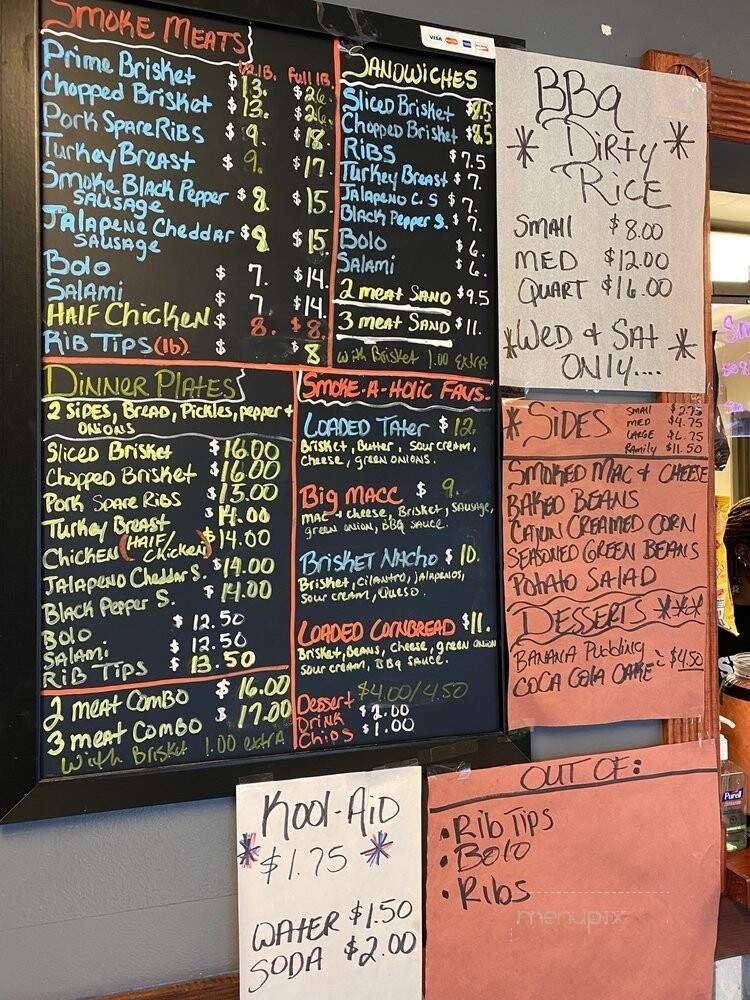 SMOKE MEATS
1/2 lB. Full lB.
Prime Brisket $13. $26.
Chopped Brisket $13. $26.
Pork SpareRiBS $9. $18.
Turkey Breast $9. $17.
Smoke Black Pepper
SAUSAGE $8 $15.
JALAPENE Cheddar
SAUSAGE $8 $15.
Bolo $7. $14.
SALAMi $7 $14.
HALF Chicken $8. $8.
RiB Tips (lb) $8
VISA
SANDWiCHES
Sliced Brisket $8.5
Chopped Brisket $8.5
RiBS $7.5
Turkey Breast $7.
JALAPENO C. S $7.
BLACK Pepper S. $7.
Bolo $6.
SALAMi $6.
2 meat SAND $9.5
3 meat SAND $11.
with Brisket 1.00 extra
DiNNER PLATES
2 SiDES, BREAD, Pickles, pepper +
ONiONS
Sliced Brisket $16.00
Chopped Brisket $16.00
Pork Spare RiBS $15.00
Turkey Breast $14.00
CHiCKEN (HALF/CHicken) $14.00
JALAPENO Cheddar S. $14.00
BLACK Pepper S. $14.00
Bolo $12.50
SALAMi $12.50
RiB TiPS $13.50
2 meat COMBO $16.00
3 meat COMBO $17.00
With Brisket 1.00 extra
SMOKE-A-HOLiC FAVS.
LOADED TAter $12.
Brisket, Butter, Sour cream,
Cheese, green ONiONS.
Big MACC $9.
MAC + cheese, Brisket, SAUSAGE,
green onion, BBQ SAUCE.
BRiSKET NACHO $10.
Brisket, CilANtrO, jAlApeNOS,
Sour cream, Queso.
LOADED CORNBREAD $11.
Brisket, BeANS, Cheese, green ONiON
Sour cream, BBQ SAUCE.
Dessert $4.00/4.50
DRiNK $2.00
CHiPS $1.00
BBQ
* DiRTY *
RiCE
SMAll $8.00
MED $12.00
QUART $16.00
*WED & SAT *
ONLY....
* SiDES
SMAll $2.75
MED $4.75
LARGE $6.75
FAMily $11.50
SMOKED MAC & CHEESE
BAKED BEANS
CAJUN CREAMED CORN
SEASONED GREEN BEANS
POTATO SALAD
DESSERTS ***
BANANA Pudding
COCA COLA CAKE - $4.50
KOOl-AiD
* $1.75 *
WATER $1.50
SODA $2.00
OUT OF:
• Rib TiPS
• Bolo
• Ribs
menupix
Purell